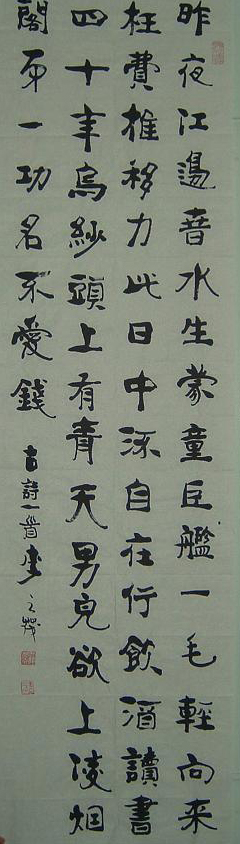 昨夜江邊春水生蒙童巨艦一毛輕向来
枉費推移力此日中流自在行飲酒讀書
四十年烏紗頭上有青天男兒欲上凌烟
閣第一功名不愛錢
古詩一首